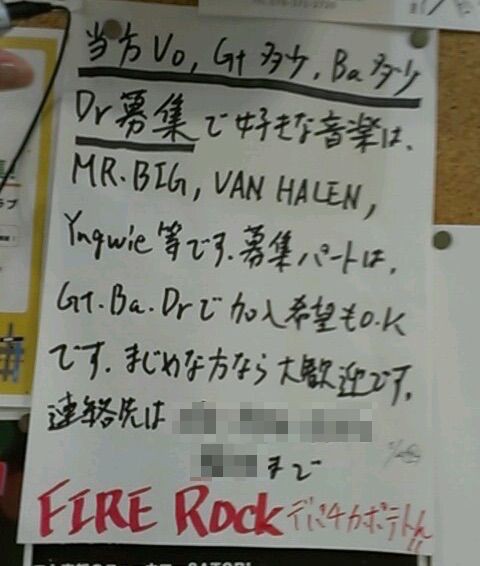 当方Vo, Gt多少, Ba多少
Dr募集で好きな音楽は、
MR.BIG, VAN HALEN,
Yngwie等です。募集パートは、
Gt.Ba.Drで加入希望もO.K
です。まじめな方なら大歓迎です。
連絡先は
まで
FIRE Rock デパチカポテトん!!